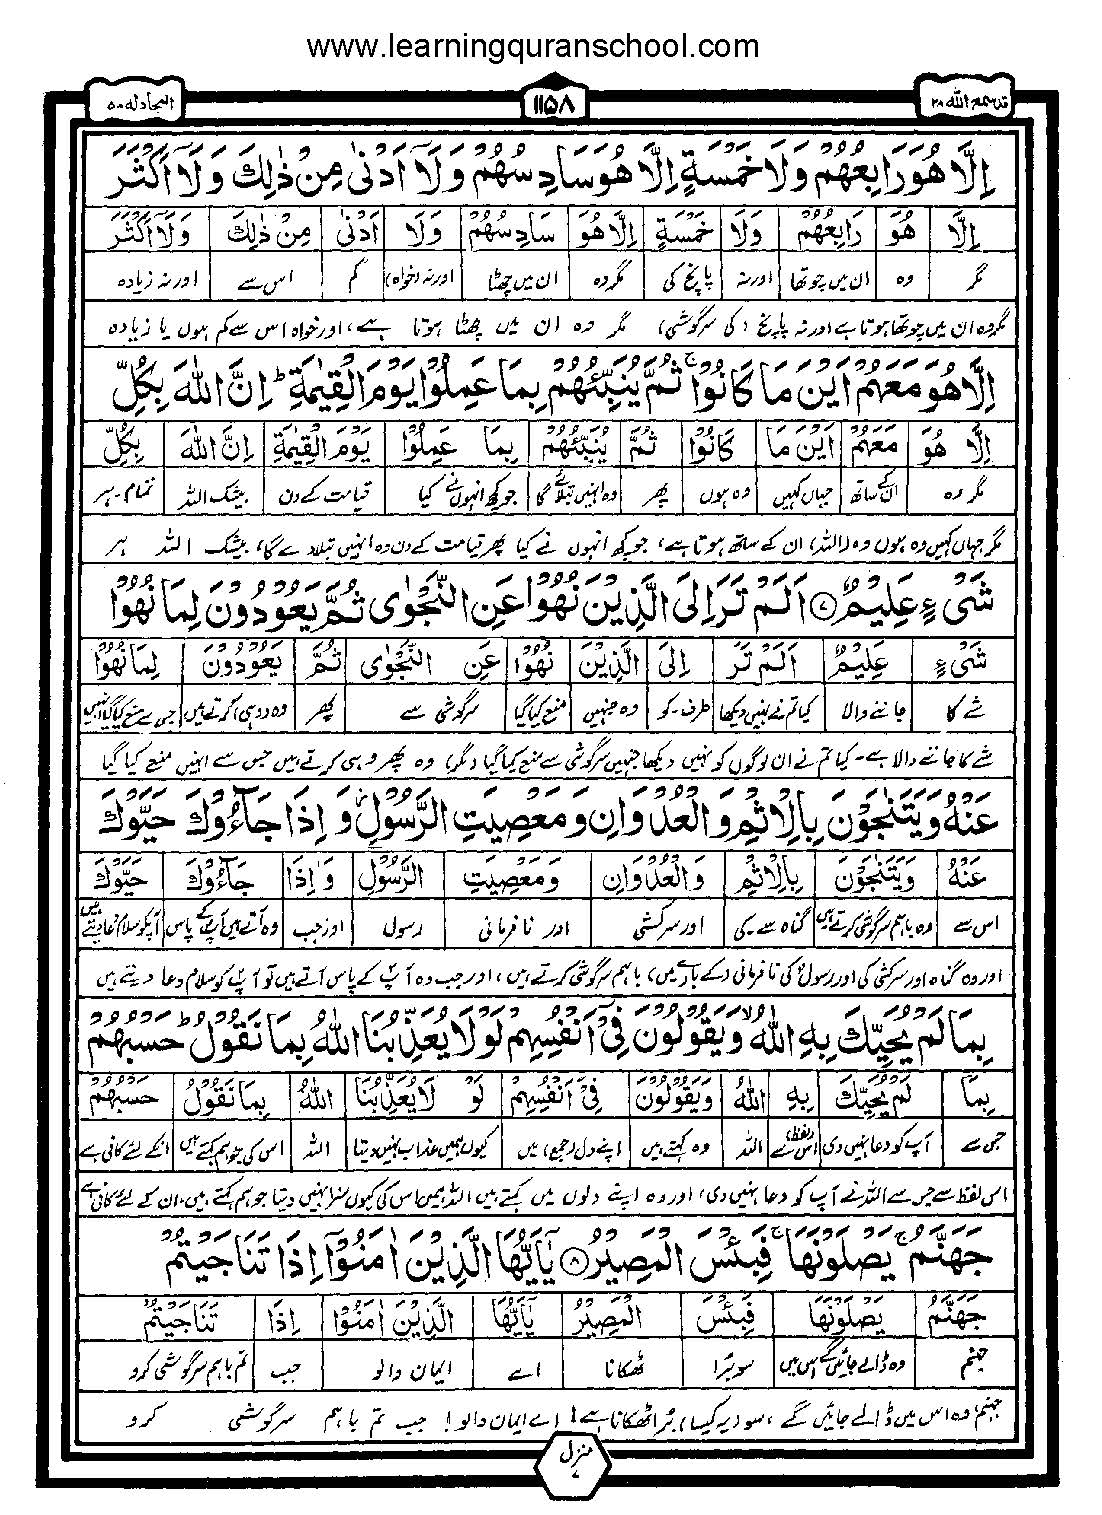 www.learningquranschool.com
قد سمع الله ۲۸ ۱۱۵۸ المجادلة ۵۸
اِلَّا هُوَ رَابِعُهُمْ وَلَا خَمْسَةٍ اِلَّا هُوَ سَادِسُهُمْ وَلَآ اَدْنٰى مِنْ ذٰلِكَ وَلَآ اَكْثَرَ
اِلَّا هُوَ رَابِعُهُمْ وَلَا خَمْسَةٍ اِلَّا هُوَ سَادِسُهُمْ وَلَا اَدْنٰى مِنْ ذٰلِكَ وَلَآ اَكْثَرَ
مگر وہ ان میں چوتھا اور نہ پانچ کی مگر وہ ان میں چھٹا اور نہ (خواہ) کم اس سے اور نہ زیادہ
مگر وہ ان میں چوتھا ہوتا ہے اور نہ پانچ (کی سرگوشی) مگر وہ ان میں چھٹا ہوتا ہے، اور خواہ اس سے کم ہوں یا زیادہ
اِلَّا هُوَ مَعَهُمْ اَيْنَ مَا كَانُوْا ۚ ثُمَّ يُنَبِّئُهُمْ بِمَا عَمِلُوْا يَوْمَ الْقِيٰمَةِ ؕ اِنَّ اللّٰهَ بِكُلِّ
اِلَّا هُوَ مَعَهُمْ اَيْنَ مَا كَانُوْا ثُمَّ يُنَبِّئُهُمْ بِمَا عَمِلُوْا يَوْمَ الْقِيٰمَةِ اِنَّ اللّٰهَ بِكُلِّ
مگر وہ ان کے ساتھ جہاں کہیں وہ ہوں پھر وہ انہیں بتلائے گا جو کچھ انہوں نے کیا قیامت کے دن بیشک اللہ تمام۔ہر
مگر جہاں کہیں وہ ہوں وہ (اللہ) ان کے ساتھ ہوتا ہے، جو کچھ انہوں نے کیا پھر قیامت کے دن وہ انہیں بتلا دے گا، بیشک اللہ ہر
شَىْءٍ عَلِيْمٌ ۷ اَلَمْ تَرَ اِلَى الَّذِيْنَ نُهُوْا عَنِ النَّجْوٰى ثُمَّ يَعُوْدُوْنَ لِمَا نُهُوْا
شَىْءٍ عَلِيْمٌ اَلَمْ تَرَ اِلَى الَّذِيْنَ نُهُوْا عَنِ النَّجْوٰى ثُمَّ يَعُوْدُوْنَ لِمَا نُهُوْا
شے کا جاننے والا کیا تم نے نہیں دیکھا طرف۔کو وہ جنہیں منع کیا گیا سرگوشی سے پھر وہ (وہی) کرتے ہیں جس سے منع کیا گیا انہیں
شے کا جاننے والا ہے۔ کیا تم نے ان لوگوں کو نہیں دیکھا جنہیں سرگوشی سے منع کیا گیا (مگر) وہ پھر وہی کرتے ہیں جس سے انہیں منع کیا گیا
عَنْهُ وَيَتَنٰجَوْنَ بِالْاِثْمِ وَالْعُدْوَانِ وَمَعْصِيَتِ الرَّسُوْلِ وَاِذَا جَآءُوْكَ حَيَّوْكَ
عَنْهُ وَيَتَنٰجَوْنَ بِالْاِثْمِ وَالْعُدْوَانِ وَمَعْصِيَتِ الرَّسُوْلِ وَاِذَا جَآءُوْكَ حَيَّوْكَ
اس سے وہ باہم سرگوشی کرتے ہیں گناہ سے۔کی اور سرکشی اور نافرمانی رسول اور جب وہ آتے ہیں آپ کے پاس آپکو سلام دعا دیتے ہیں
اور وہ گناہ اور سرکشی کی اور رسول کی نافرمانی (کے بارے میں) باہم سرگوشی کرتے ہیں، اور جب وہ آپ کے پاس آتے ہیں تو آپ کو سلام دعا دیتے ہیں
بِمَا لَمْ يُحَيِّكَ بِهِ اللّٰهُ وَيَقُوْلُوْنَ فِىْٓ اَنْفُسِهِمْ لَوْلَا يُعَذِّبُنَا اللّٰهُ بِمَا نَقُوْلُ ؕ حَسْبُهُمْ
بِمَا لَمْ يُحَيِّكَ بِهِ اللّٰهُ وَيَقُوْلُوْنَ فِىْٓ اَنْفُسِهِمْ لَوْ لَا يُعَذِّبُنَا اللّٰهُ بِمَا نَقُوْلُ حَسْبُهُمْ
جس سے آپ کو دعا نہیں دی اس (لفظ) سے اللہ وہ کہتے ہیں اپنے دل (جمع) میں کیوں ہمیں عذاب نہیں دیتا اللہ اس کی جو ہم کہتے ہیں انکے لئے کافی ہے
اس لفظ سے جس سے اللہ نے آپ کو دعا نہیں دی، اور وہ اپنے دلوں میں کہتے ہیں اللہ ہمیں اس کی کیوں سزا نہیں دیتا جو ہم کہتے ہیں، ان کے لئے کافی ہے
جَهَنَّمُ ۚ يَصْلَوْنَهَا ۚ فَبِئْسَ الْمَصِيْرُ ۸ يٰٓاَيُّهَا الَّذِيْنَ اٰمَنُوْٓا اِذَا تَنَاجَيْتُمْ
جَهَنَّمُ يَصْلَوْنَهَا فَبِئْسَ الْمَصِيْرُ يٰٓاَيُّهَا الَّذِيْنَ اٰمَنُوْٓا اِذَا تَنَاجَيْتُمْ
جہنم وہ ڈالے جائیں گے اس میں سو برا ٹھکانا اے ایمان والو جب تم باہم سرگوشی کرو
جہنم، وہ اس میں ڈالے جائیں گے، سو (یہ کیسا) برا ٹھکانا ہے! اے ایمان والو! جب تم باہم سرگوشی کرو
منزل ۷